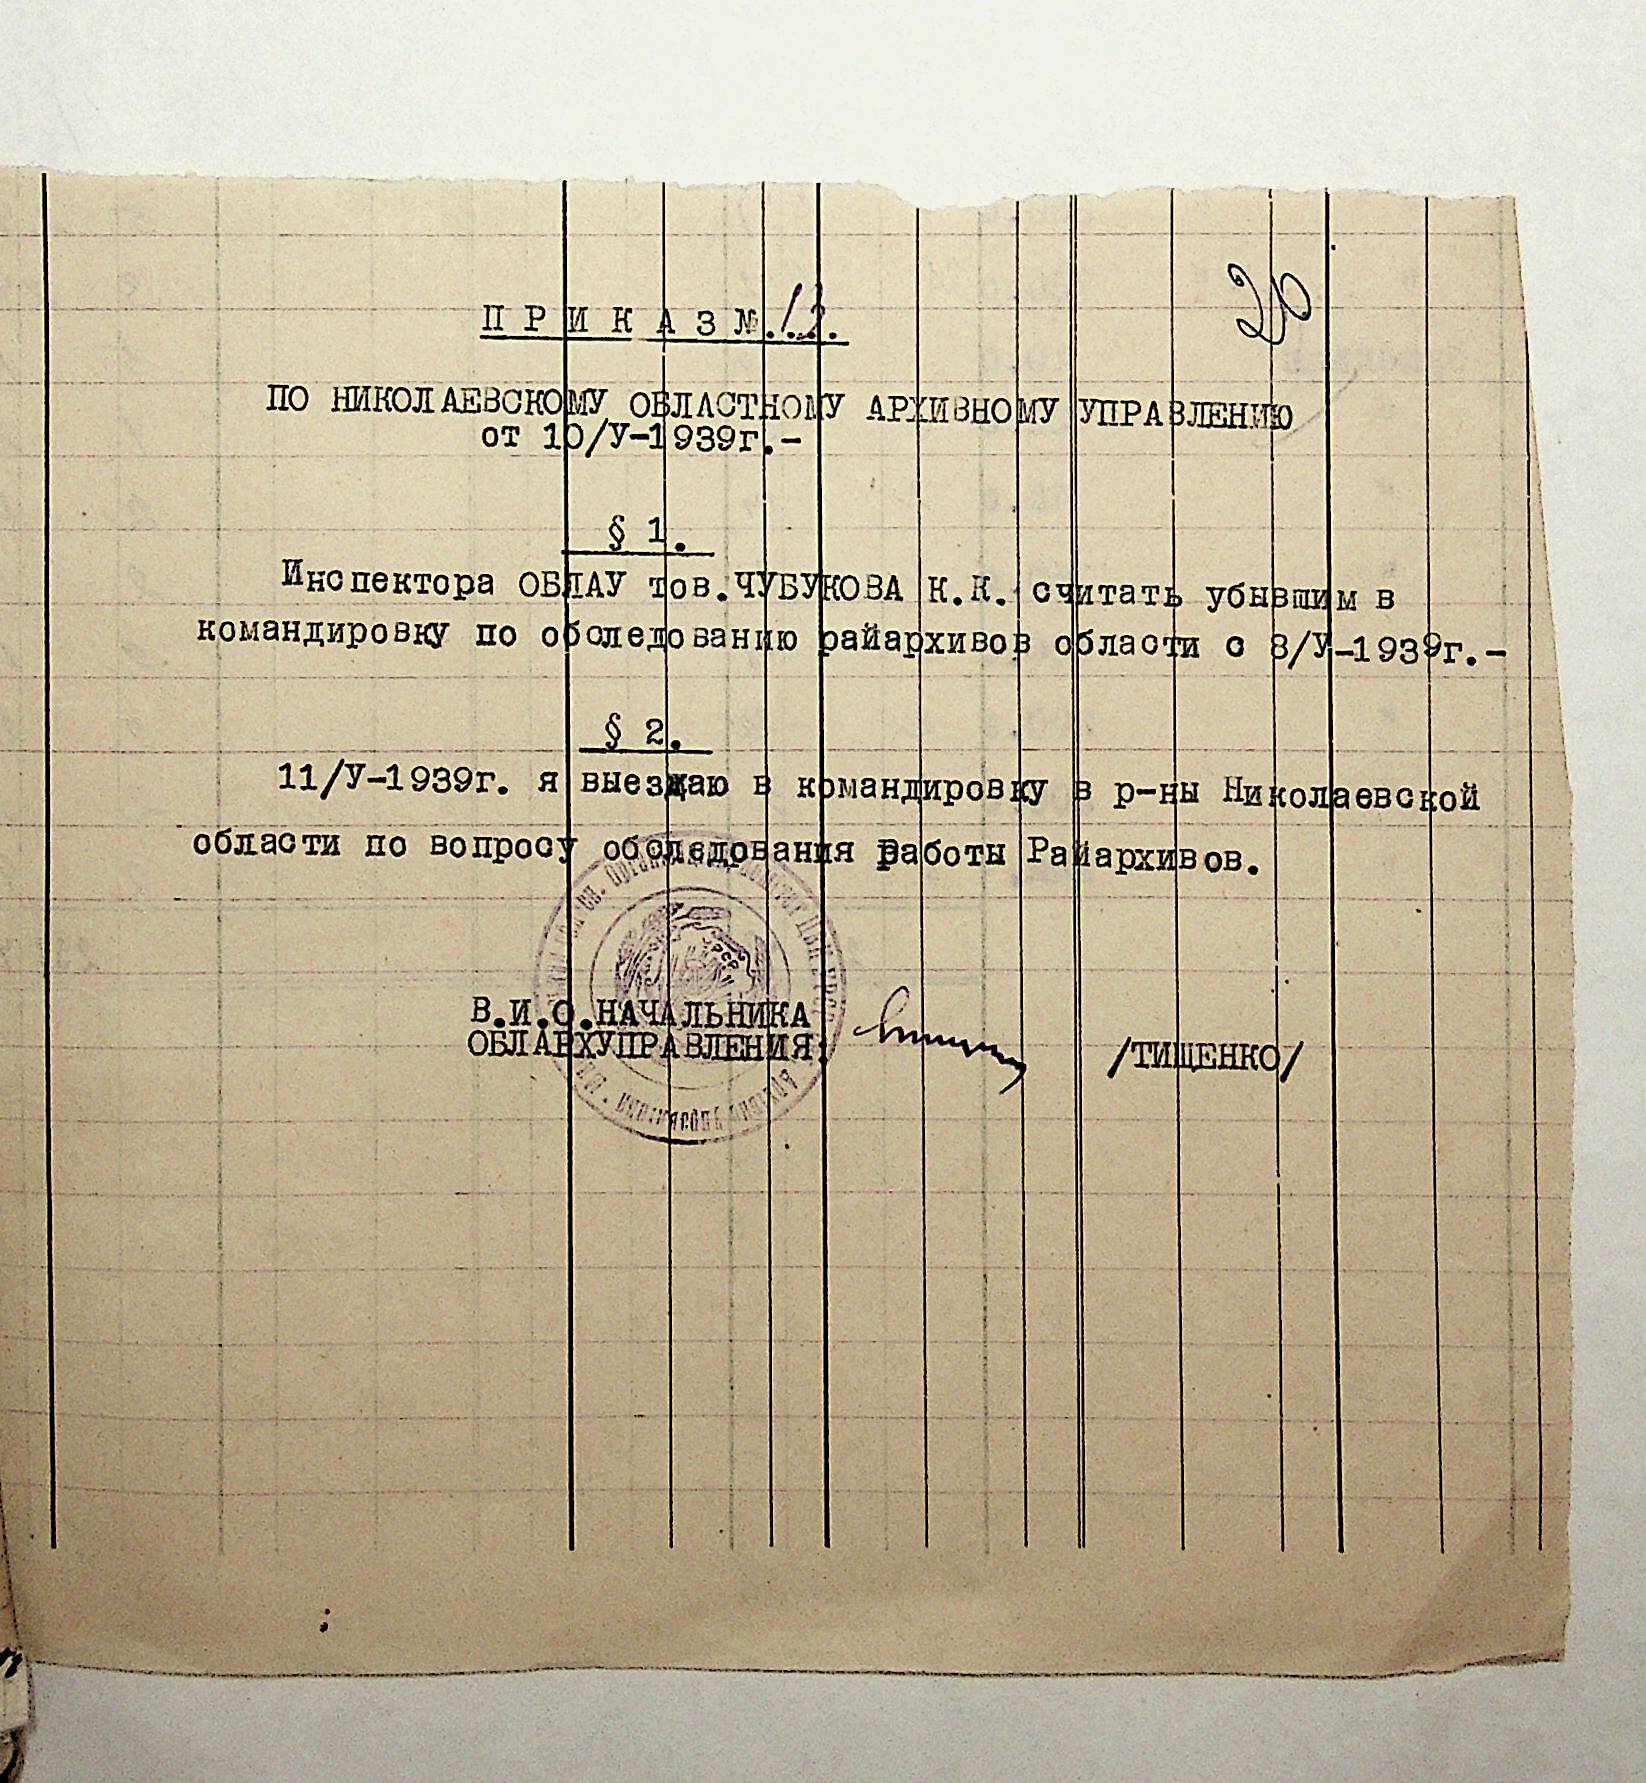 20
П Р И К А З №.13.
ПО НИКОЛАЕВСКОМУ ОБЛАСТНОМУ АРХИВНОМУ УПРАВЛЕНИЮ
от 10/У-1939г.-
§ 1.
Инспектора ОБЛАУ тов.ЧУБУКОВА К.К. считать убывшим в
командировку по обследованию райархивов области с 8/У-1939г.-
§ 2.
11/У-1939г. я выезжаю в командировку в р-ны Николаевской
области по вопросу обследования работы Райархивов.
УРСР
В.И.О.НАЧАЛЬНИКА
ОБЛАРХУПРАВЛЕНИЯ:
/ТИЩЕНКО/